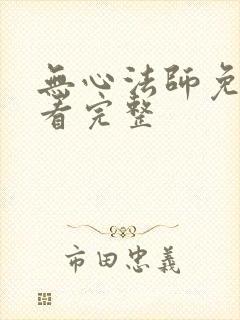 無心法師免
看完整
市田忠義